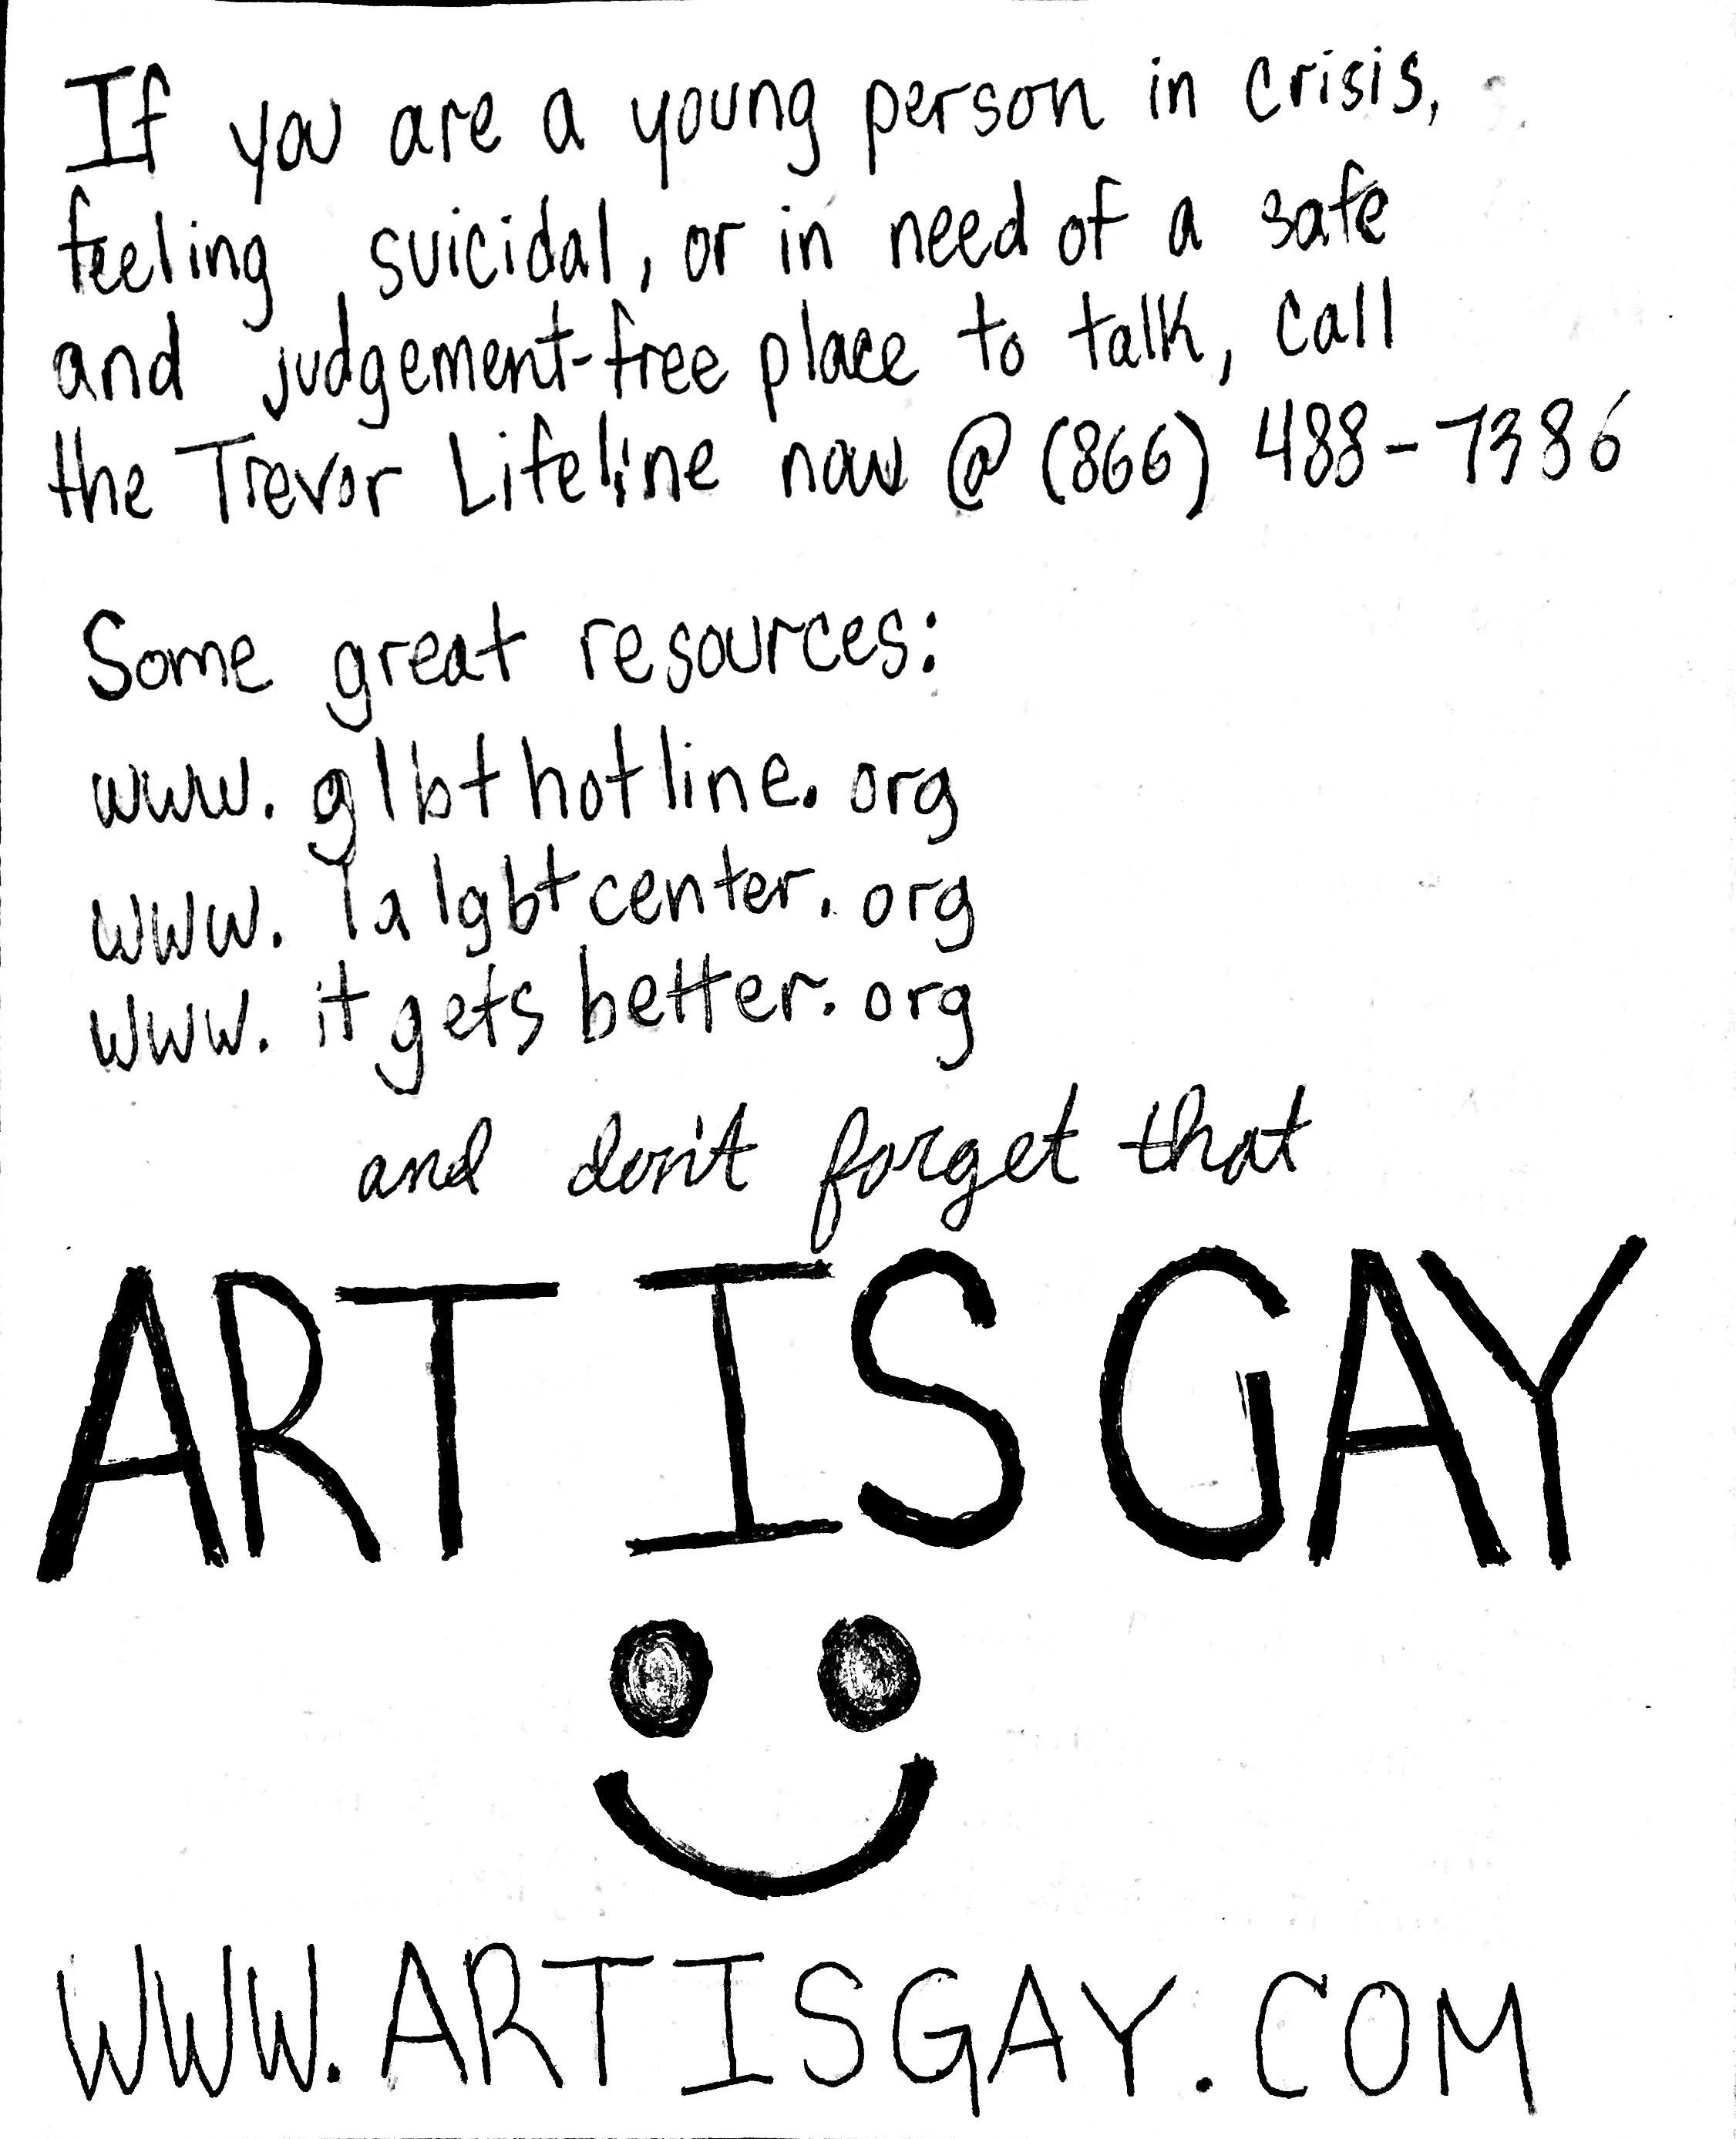 If you are a young person in crisis,
feeling suicidal, or in need of a safe
and judgement-free place to talk, call
the Trevor Lifeline now @ (866) 488-7386
Some great resources:
www.glbthotline.org
www.lalgbtcenter.org
www.itgetsbetter.org
and don't forget that
ART IS GAY
WWW.ARTISGAY.COM